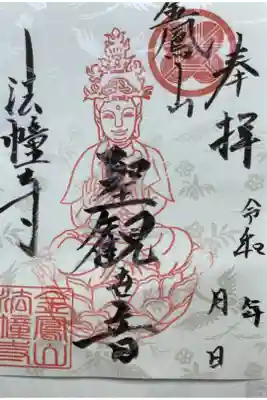 奉拝
令和 年
月 日
金鳳山
聖観世音
法幢寺
金鳳山
法幢寺